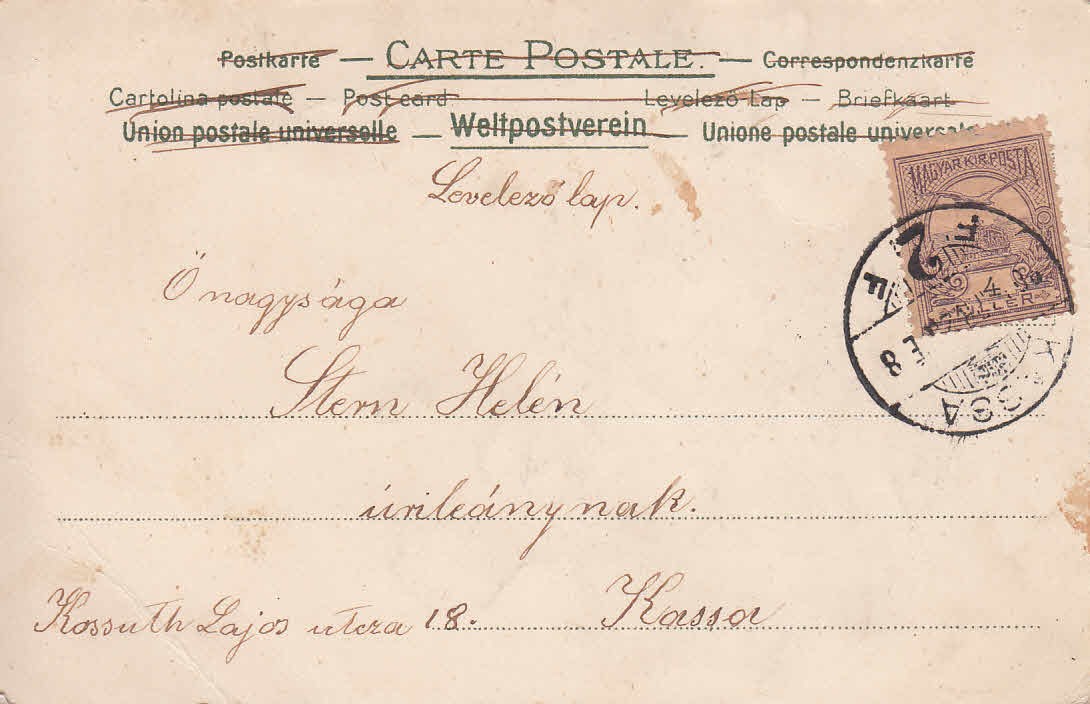 Postkarte — CARTE POSTALE. — Correspondenzkarte
Cartolina postale — Post card Levelező-Lap — Briefkaart
Union postale universelle — Weltpostverein — Unione postale universale
Levelező lap.
MAGYAR KIR. POSTA
2 F
FILLER
KASSA
Ő nagysága
Stern Helén
úrileánynak.
Kossuth Lajos utcza 18. Kassa